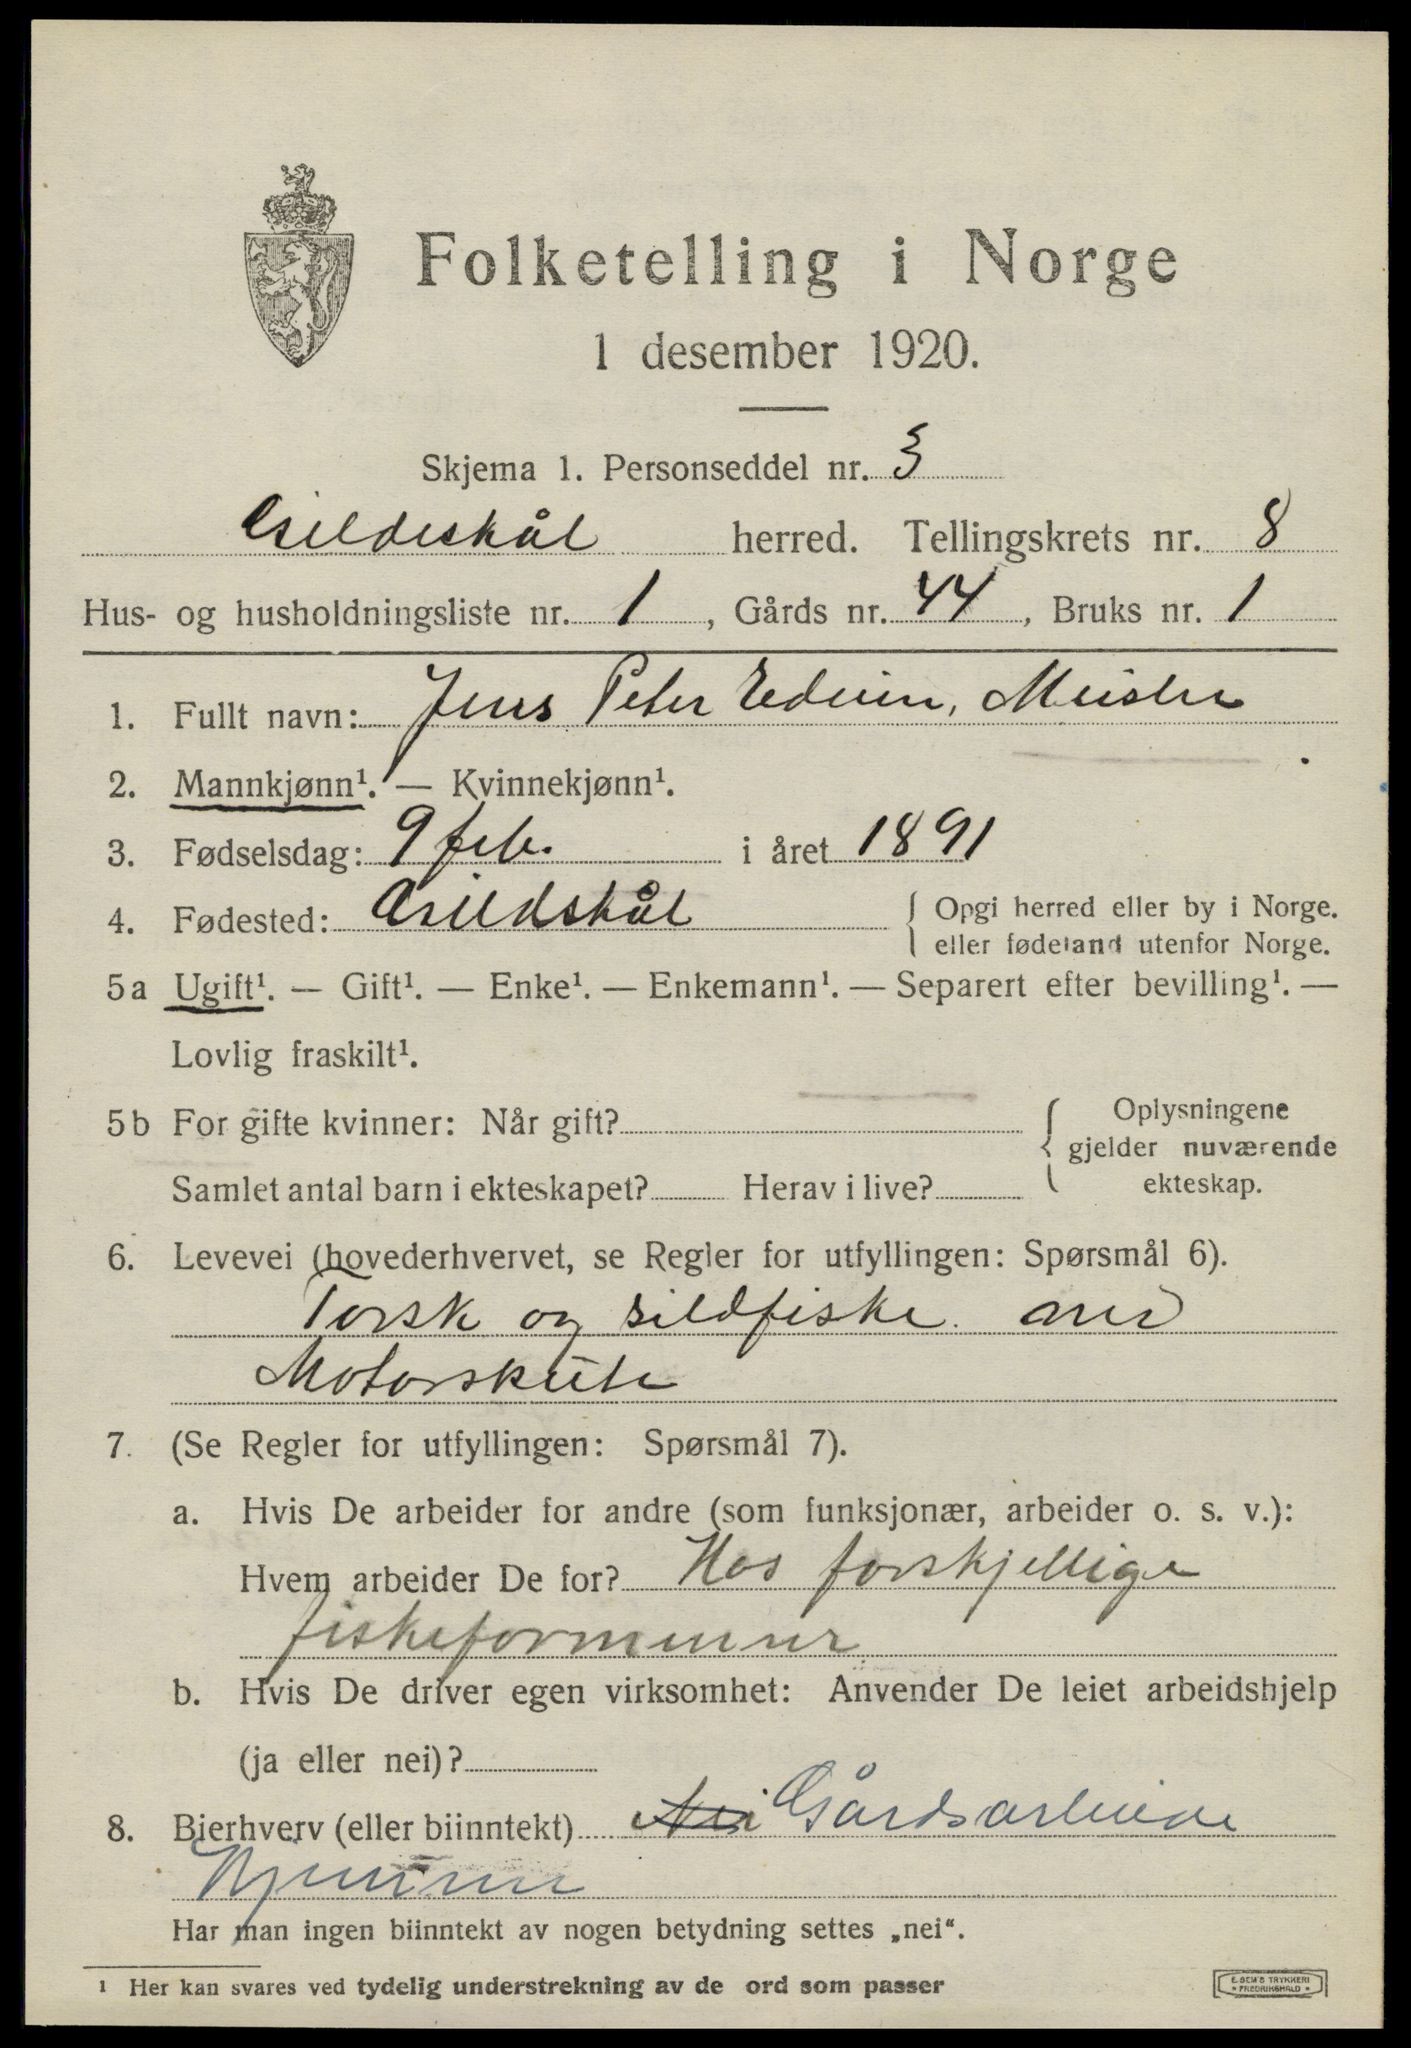 Folketelling i Norge
1 desember 1920.
Skjema 1. Personseddel nr. 3
Gildeskål herred. Tellingskrets nr. 8
Hus- og husholdningsliste nr. 1, Gårds nr. 44, Bruks nr. 1
1. Fullt navn: Jens Peter Edvin, Meisler
2. Mannkjønn¹. — Kvinnekjønn¹.
3. Fødselsdag: 9 feb. i året 1891
4. Fødested: Gildskål { Opgi herred eller by i Norge.
eller fødeland utenfor Norge.
5a Ugift¹. — Gift¹. — Enke¹. — Enkemann¹. — Separert efter bevilling¹. —
Lovlig fraskilt¹.
5b For gifte kvinner: Når gift? { Oplysningene
gjelder nuværende
Samlet antal barn i ekteskapet? Herav i live? ekteskap.
6. Levevei (hovederhvervet, se Regler for utfyllingen: Spørsmål 6).
Torsk og sildfiske. med
Motorskute
7. (Se Regler for utfyllingen: Spørsmål 7).
a. Hvis De arbeider for andre (som funksjonær, arbeider o. s. v.):
Hvem arbeider De for? Hos forskjellige
fiskeformenner
b. Hvis De driver egen virksomhet: Anvender De leiet arbeidshjelp
(ja eller nei)?
8. Bierhverv (eller biinntekt) Nei Gårdsarbeide
Hjemme
Har man ingen biinntekt av nogen betydning settes „nei“.
¹ Her kan svares ved tydelig understrekning av de ord som passer
E. SEM'S TRYKKERI
FREDRIKSHALD